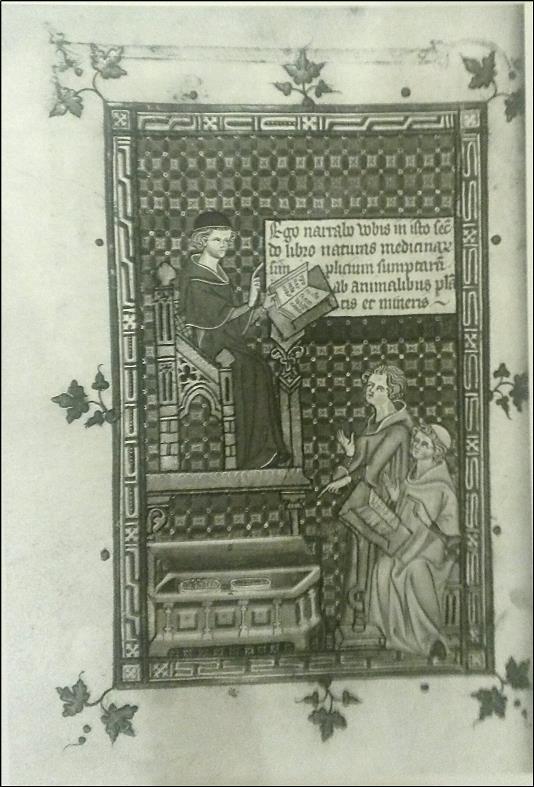 Ego narrabo vobis in isto secū
do libro naturas medicinaꝝ
sim plicium sumptarū
ab animalibus plā
tis et mineris